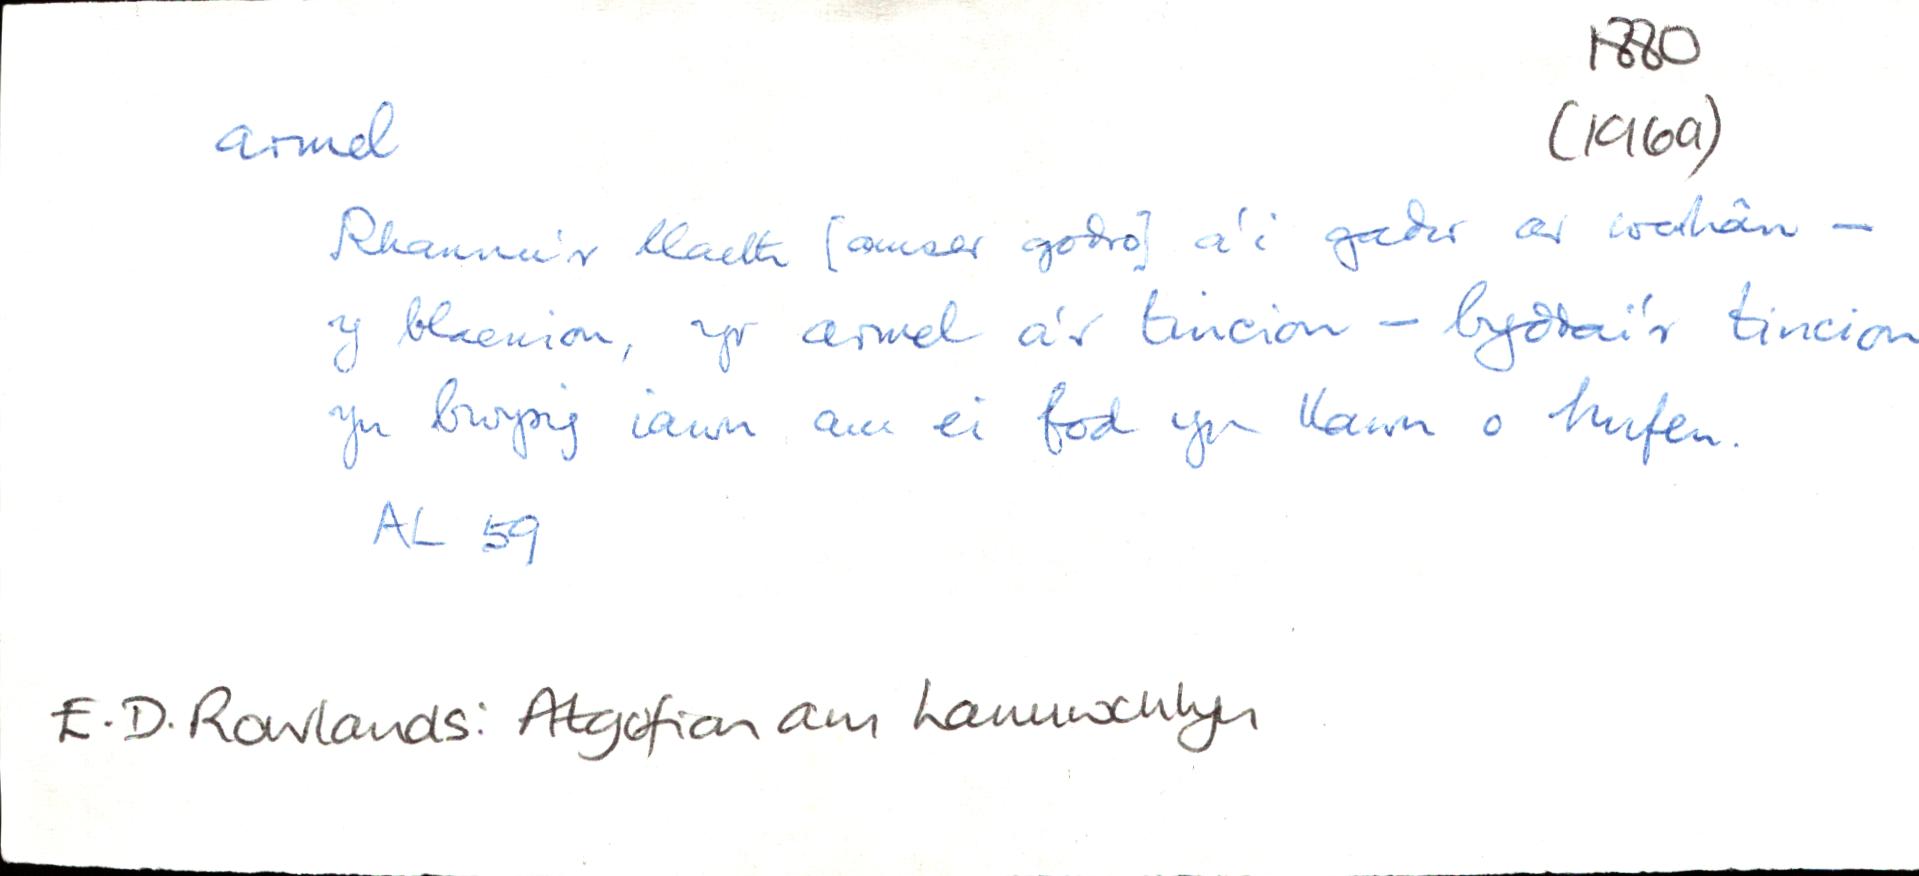 1880
(1969)
armel
Rhannu'r llaeth [amser godro] a'i gadw ar wahân –
y blaenion, yr armel a'r tincion – byddai'r tincion
yn bwysig iawn am ei fod yn llawn o hufen.
AL 59
E. D. Rowlands: Atgofion am Lanuwchllyn